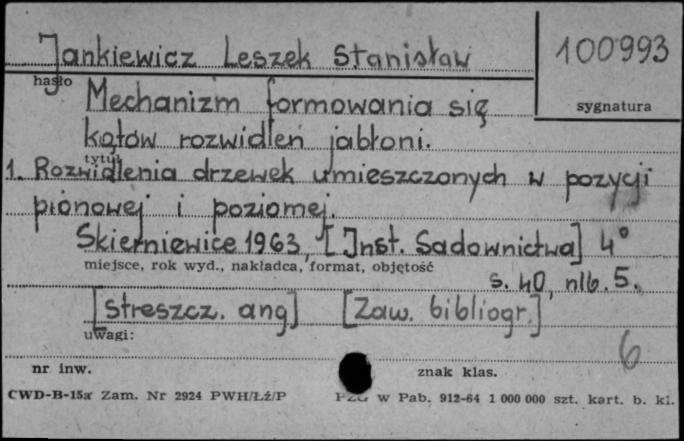 Jankiewicz Leszek Stanisław
100993
hasło
sygnatura
Mechanizm formowania się
kątów rozwidleń jabłoni.
tytuł
1. Rozwidlenia drzewek umieszczonych w pozycji
pionowej i poziomej.
Skierniewice 1963, [Inst. Sadownictwa] 4°
miejsce, rok wyd., nakładca, format, objętość
s. 40, nlb. 5.
[Streszcz. ang] [Zaw. bibliogr.]
uwagi:
6
nr inw.
znak klas.
CWD-B-15a Zam. Nr 2924 PWH/Łź/P
PZG w Pab. 912-64 1 000 000 szt. kart. b. kl.